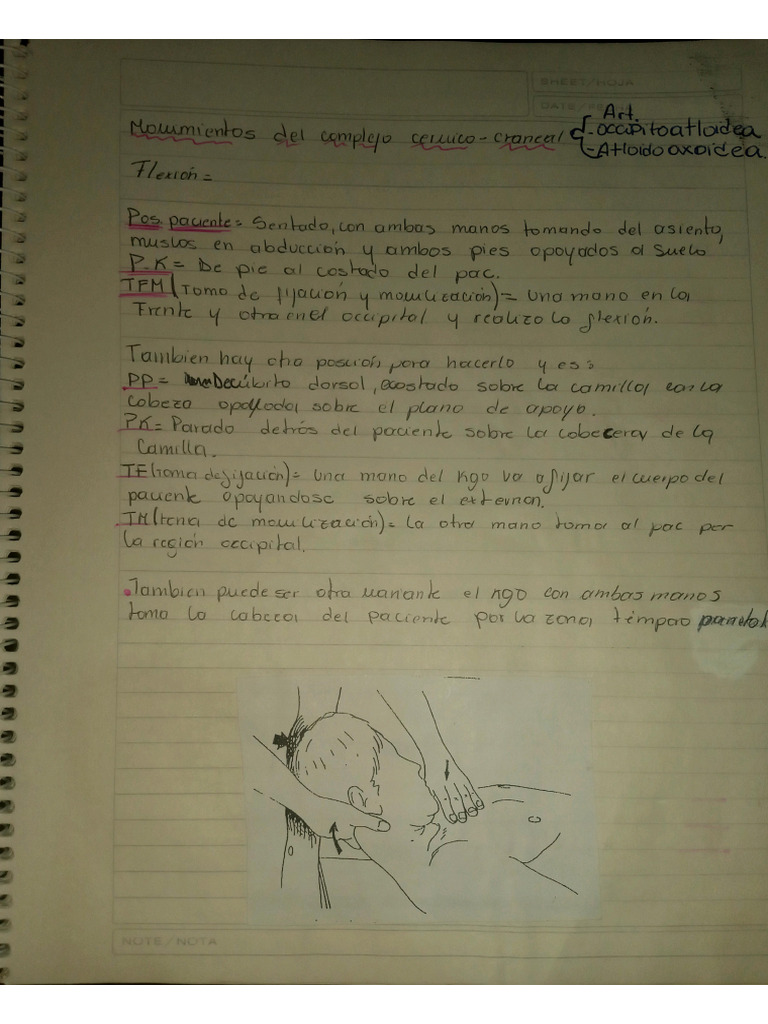 SHEET/HOJA
DATE/
Movimientos del complejo cervico-craneal
Art.
-occipitoatloidea
-Atloidoaxoidea.
Flexión=
Pos. paciente= Sentado, con ambas manos tomando del asiento,
muslos en abducción y ambos pies apoyados al suelo
P.K= De pie al costado del pac.
TFM (Toma de fijación y movilización)= una mano en la
Frente y otra en el occipital y realizo la flexión.
Tambien hay otra posición para hacerlo y es:
PP= Decúbito dorsal, acostado sobre la camilla, con la
cabeza apoyada sobre el plano de apoyo.
PK= Parado detrás del paciente sobre la cabecera de la
Camilla.
TF(toma de fijación)= una mano del Kgo va a fijar el cuerpo del
paciente apoyandose sobre el externon.
TM(toma de movilización)= la otra mano toma al pac por
la región occipital.
.Tambien puede ser otra variante el Kgo con ambas manos
toma la cabeza del paciente por la zona témporo parietal
NOTE/NOTA